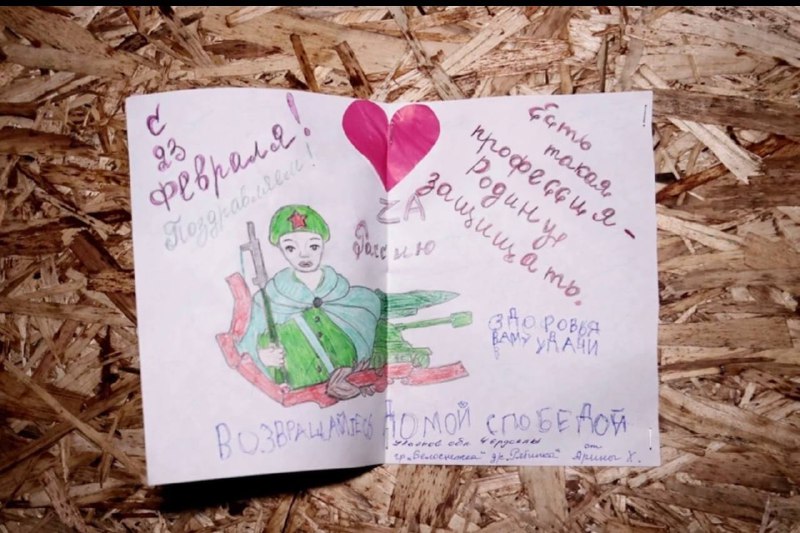 С
23
февраля!
Поздравляем!
ZА
Россию
Есть
такая
профессия-
родину
защищать.
ЗДОРОВЬЯ
ВАМ У УДАЧИ
ВОЗВРАЩАЙТЕСЬ ДОМОЙ С ПОБЕДОЙ
Ульянов обл. Чердаклы от
гр. „Белоснежка" др. „Рябинка" Арины Х.